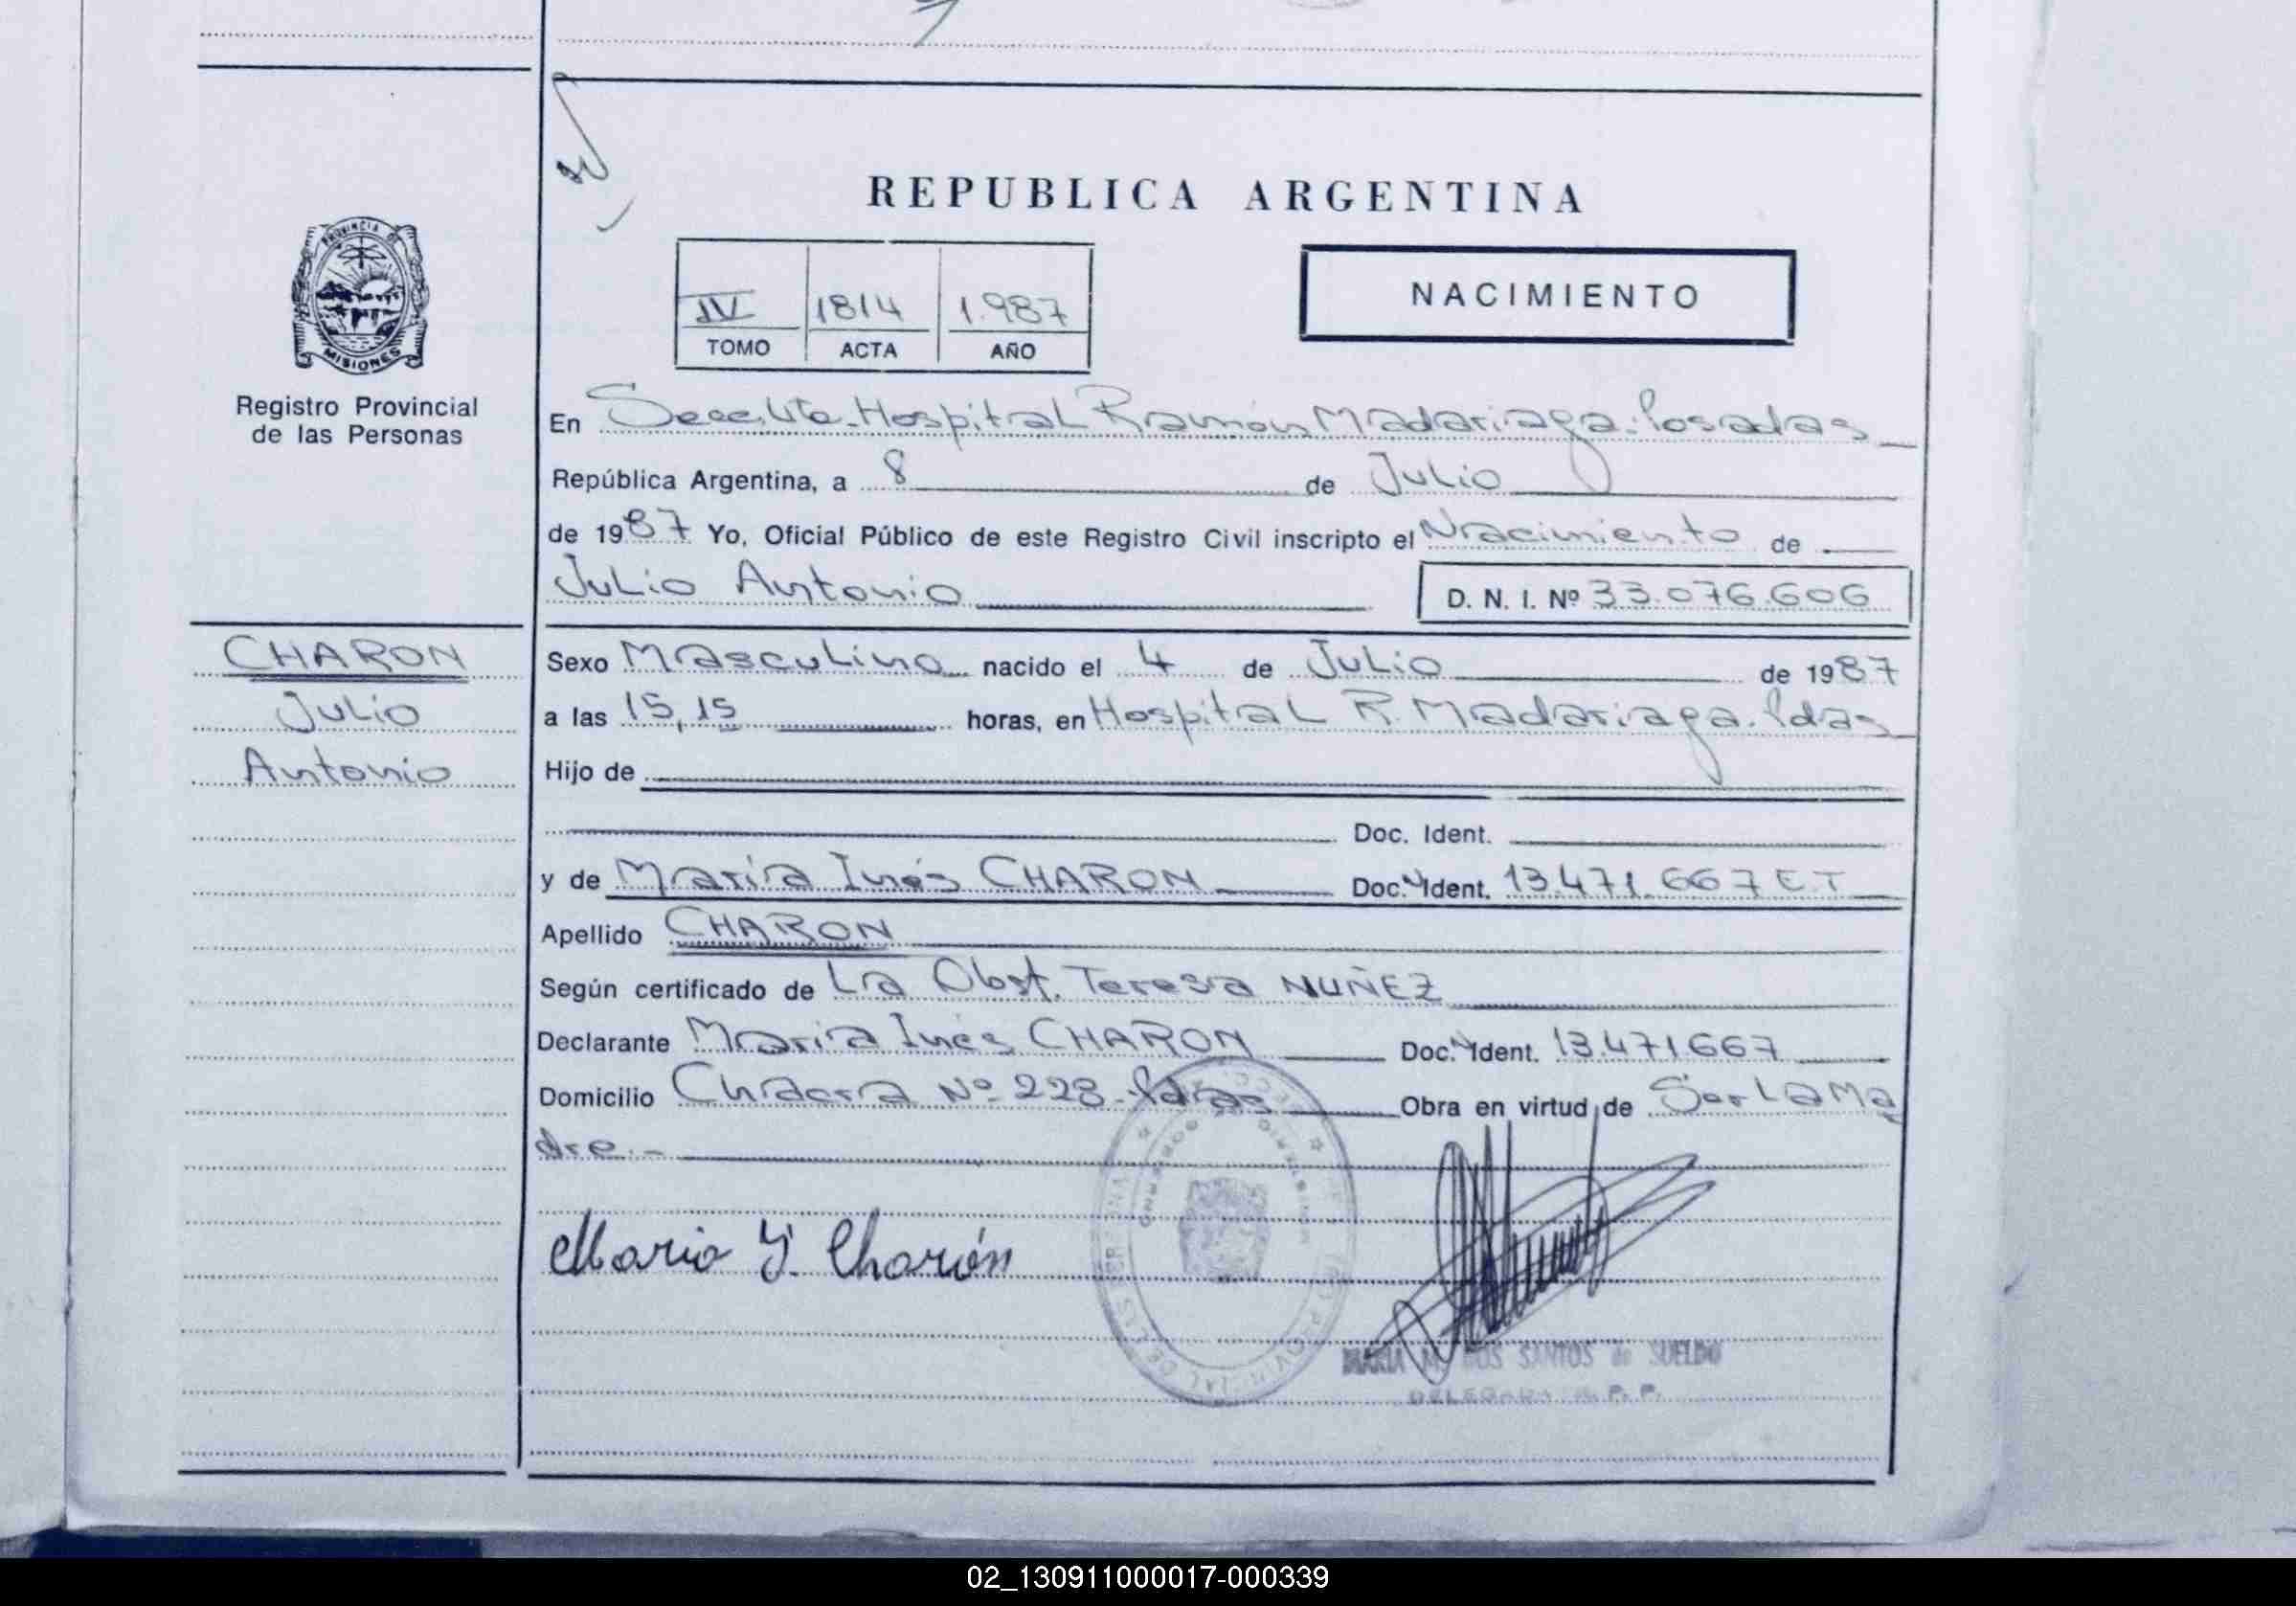 REPUBLICA ARGENTINA
PROVINCIA DE
MISIONES
Registro Provincial
de las Personas
IV 1814 1.987
TOMO ACTA AÑO
NACIMIENTO
En Secc. Hospital Ramón Madariaga. Posadas
República Argentina, a 8 de Julio
de 1987 Yo, Oficial Público de este Registro Civil inscripto el Nacimiento de
Julio Antonio D. N. I. Nº 33.076.606
CHARON
Julio
Antonio
Sexo Masculino nacido el 4 de Julio de 1987
a las 15,15 horas, en Hospital R. Madariaga. Pdas
Hijo de
Doc. Ident.
y de María Inés CHARON Doc. Ident. 13.471.667 E.T
Apellido CHARON
Según certificado de La Obst. Teresa NUÑEZ
Declarante María Inés CHARON Doc. Ident. 13.471667
Domicilio Chacra Nº 228. Pdas Obra en virtud de Ser La Ma
dre.-
Maria I. Charón
MARIA M. DOS SANTOS de SUELDO
DELEGADA R. P. P.
02_130911000017-000339